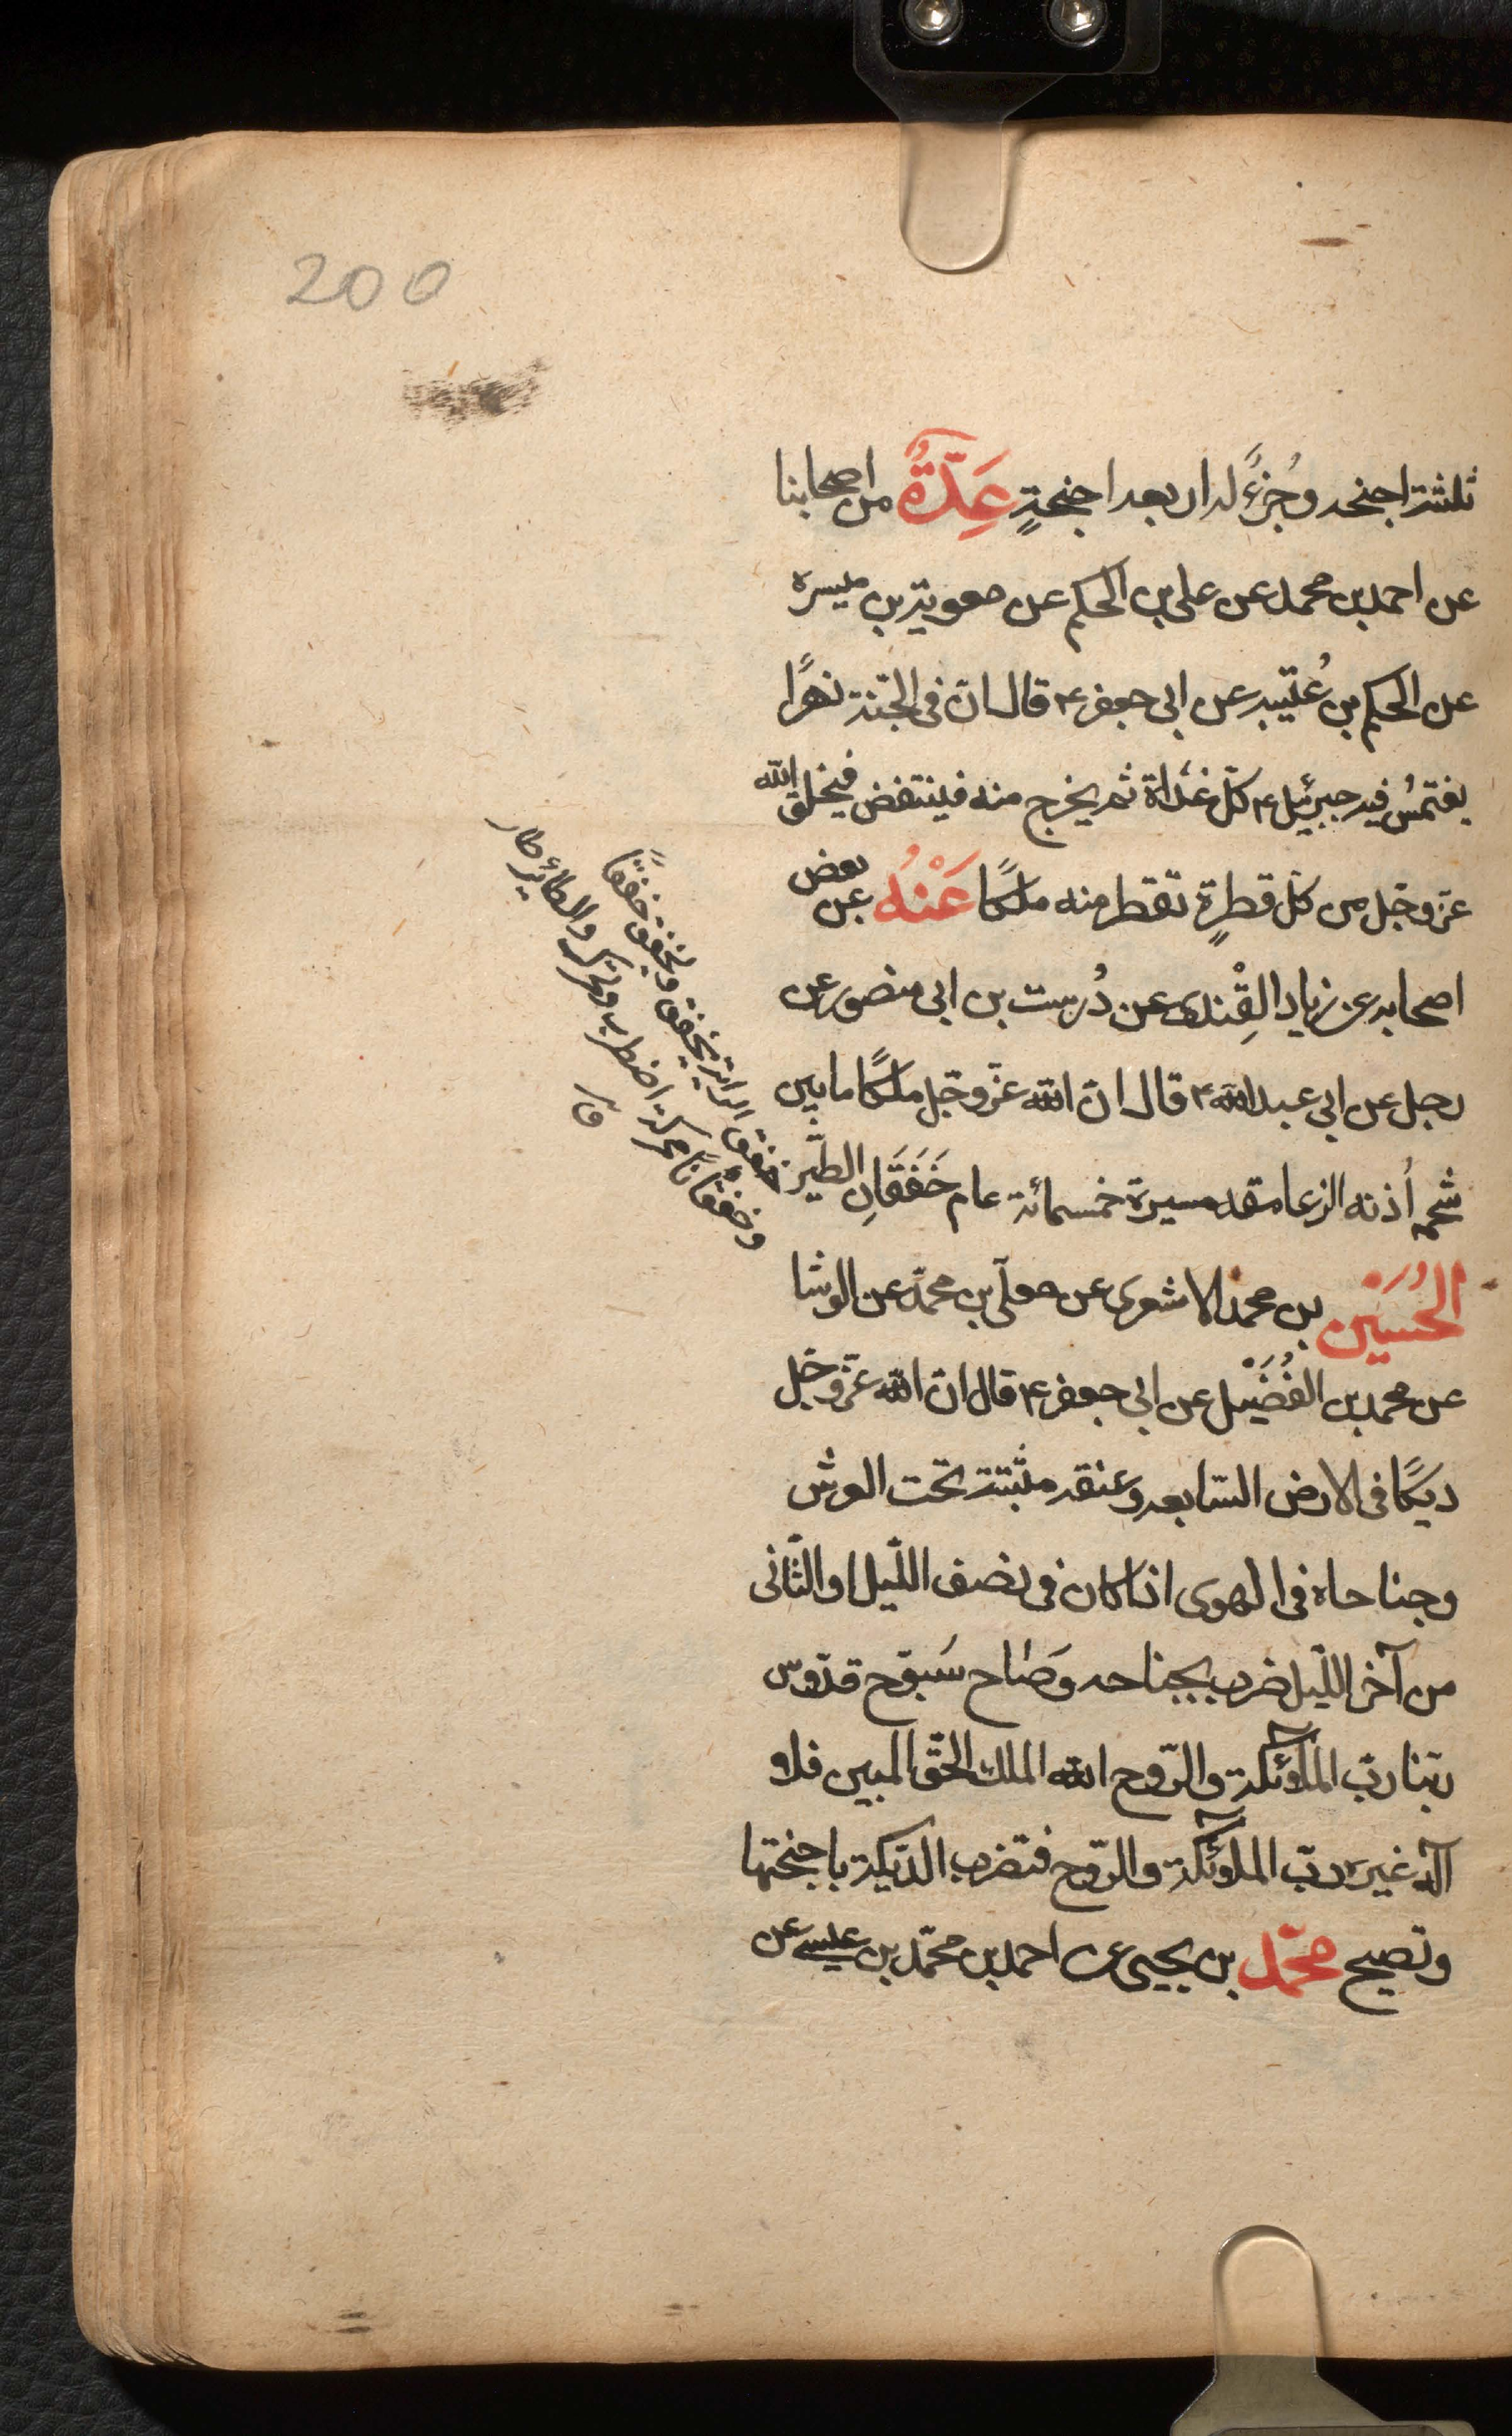 200
ثلثة اجنحه وجُزءً له اربعه اجنحةٍ عِدَّةٌ من اصحابنا
عن احمد بن محمد عن على بن الحكم عن معوية بن ميسرة
عن الحكم بن عُتَيبه عن ابى جعفر ع قال انّ فى الجنّة نهرًا
يغتمسُ فيه جبرئيل ع كلّ غداة ثم يخرج منه فينتفض فيخلق الله
عزّ وجّل من كلّ قطرةٍ تقطر منه ملكًا عَنْهُ عن بعض
اصحابه عن زياد القِنْدى عن دُرست بن ابى منصور عن
رجل عن ابى عبدالله ع قال انّ الله عزّ وجّل ملكًا ما بين
شحمة اُذنه الى عاتقه مسيرة خمسمائة عام خَفَقَانِ الطّير
الحُسَيْن بن محمد الاشعرى عن معلّى بن محمّد عن الوشا
عن محمد بن الفُضَيْل عن ابى جعفر ع قال انّ الله عزّ وجّل
ديكًا فى الارض السّابعه وعنقه مثبتة تحت العرش
وجناحاه فى الهوى اذا كان فى نصف اللّيل او الثّانى
من آخر اللّيل ضرب بجناحه وصَاح سَبّوح قدّوس
ربّنا ربّ الملٰٓئكة والرّوح الله الملك الحقّ المبين فلا و
آله غيره ربّ الملٰٓئكة والرّوح فتضرب الدّيكة باجنحتها
وتصيح محمّد بن يحيى عن احمد بن محمّد بن عيسى عن
خفق الراية يخفق ويخفق خفقًا
وخفقانًا محركة اضطرب وتحرك والطائر طار
ق